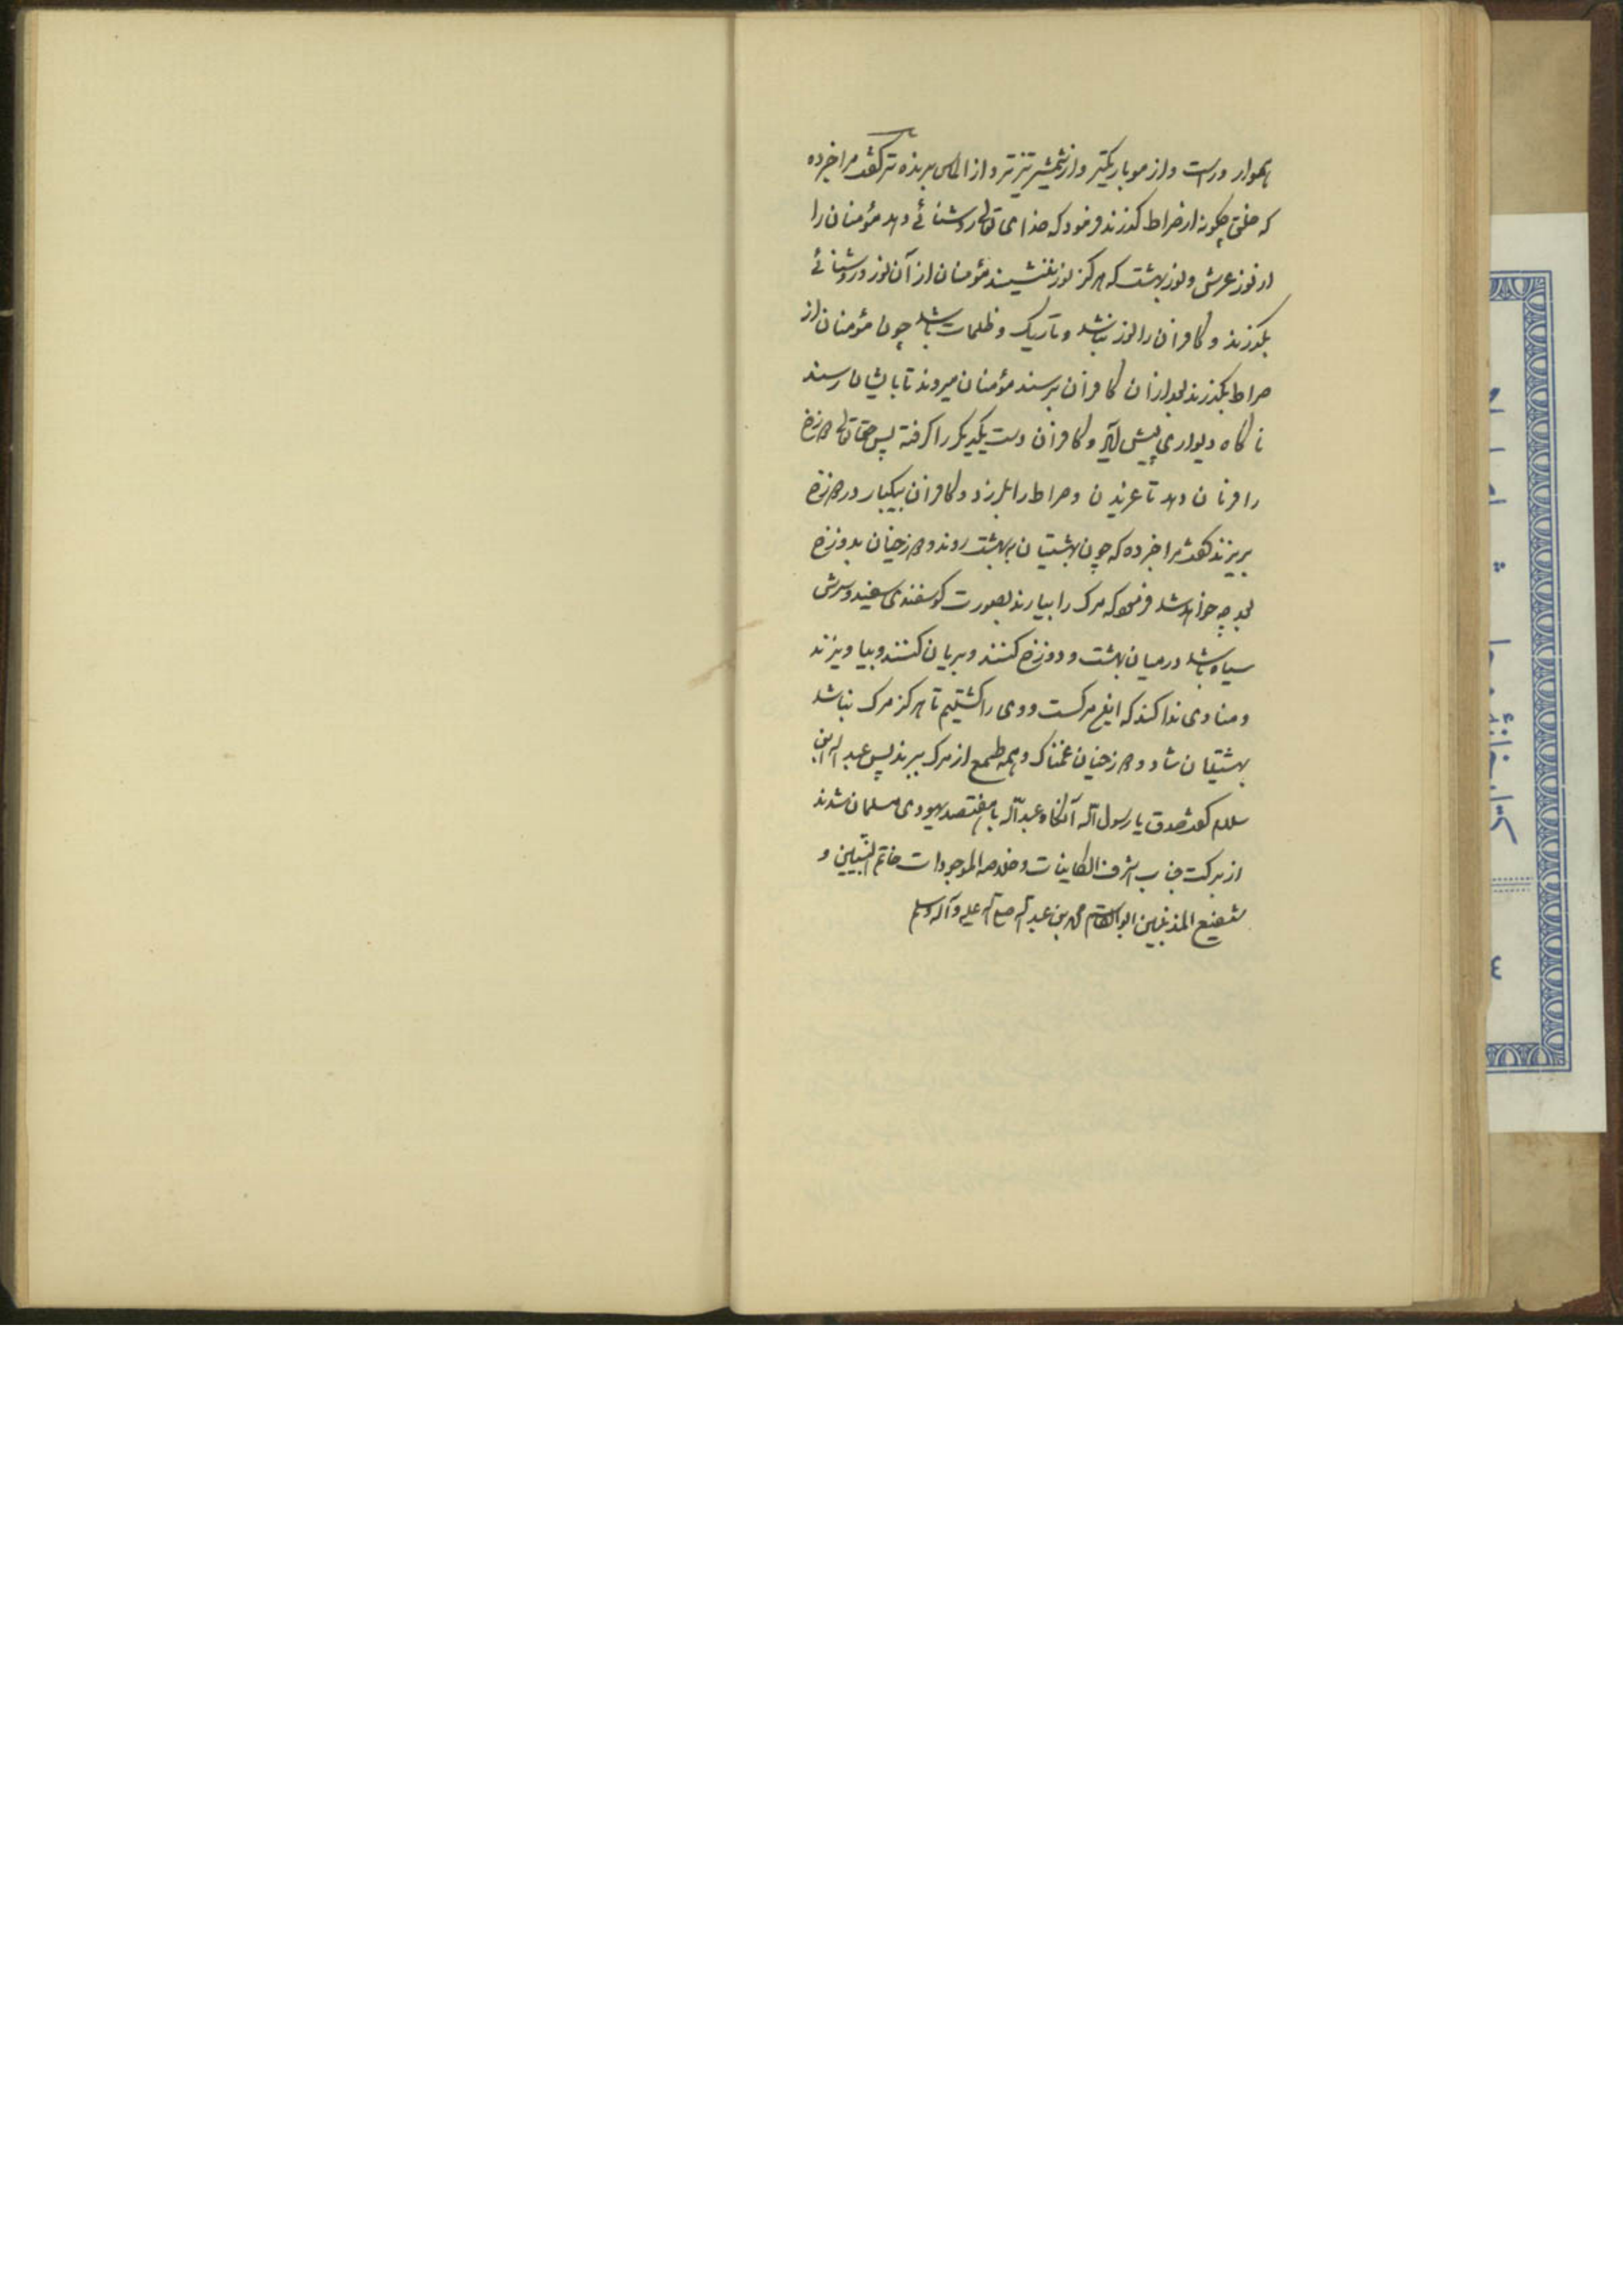 هموار و راست و از مو باریکتر و از شمشیر تیزتر و از الماس برنده تر گفت مرا خبر ده
که خلق چکونه از صراط کذرند فرمود که خدای تعالی روشنائے دهد مؤمنان را
از نور عرش و نور بهشت که هرکز نور ننشیند مؤمنان از آن نور و روشنائے
بکذرند و کافران را نور نباشد و تاریک و ظلمات باشد چون مؤمنان از
صراط بکذرند بعد از آن کافران برسند مؤمنان میروند تا بایشان رسند
ناکاه دیواری پیش آید و کافران دست یکدیکر را کرفته پس حق تعالی دوزخ
را فرمان دهد تا غریدن و صراط را بلرزد و کافران بیکبار در دوزخ
بریزند گفت مرا خبر ده که چون بهشتیان به بهشت روند و دوزخیان بدوزخ
بعد چه خواهد شد فرمود که مرک را بیارند بصورت کوسفندی سفید و سرش
سیاه باشد در میان بهشت و دوزخ کنند و بریان کنند و بیاویزند
و منادی ندا کند که این مرکست و وی را کشتیم تا هرکز مرک نباشد
بهشتیان شاد و دوزخیان غمناک و همه طمع از مرک ببرند پس عبد الله ابن
سلام گفت صدق یا رسول الله آنکاه عبد الله با هفتصد یهودی مسلمان شدند
از برکت جناب اشرف الکاینات و خلاصه الموجودات خاتم النبیین و
شفیع المذنبین ابو القاسم محمد بن عبد الله صلی الله علیه و آله وسلم